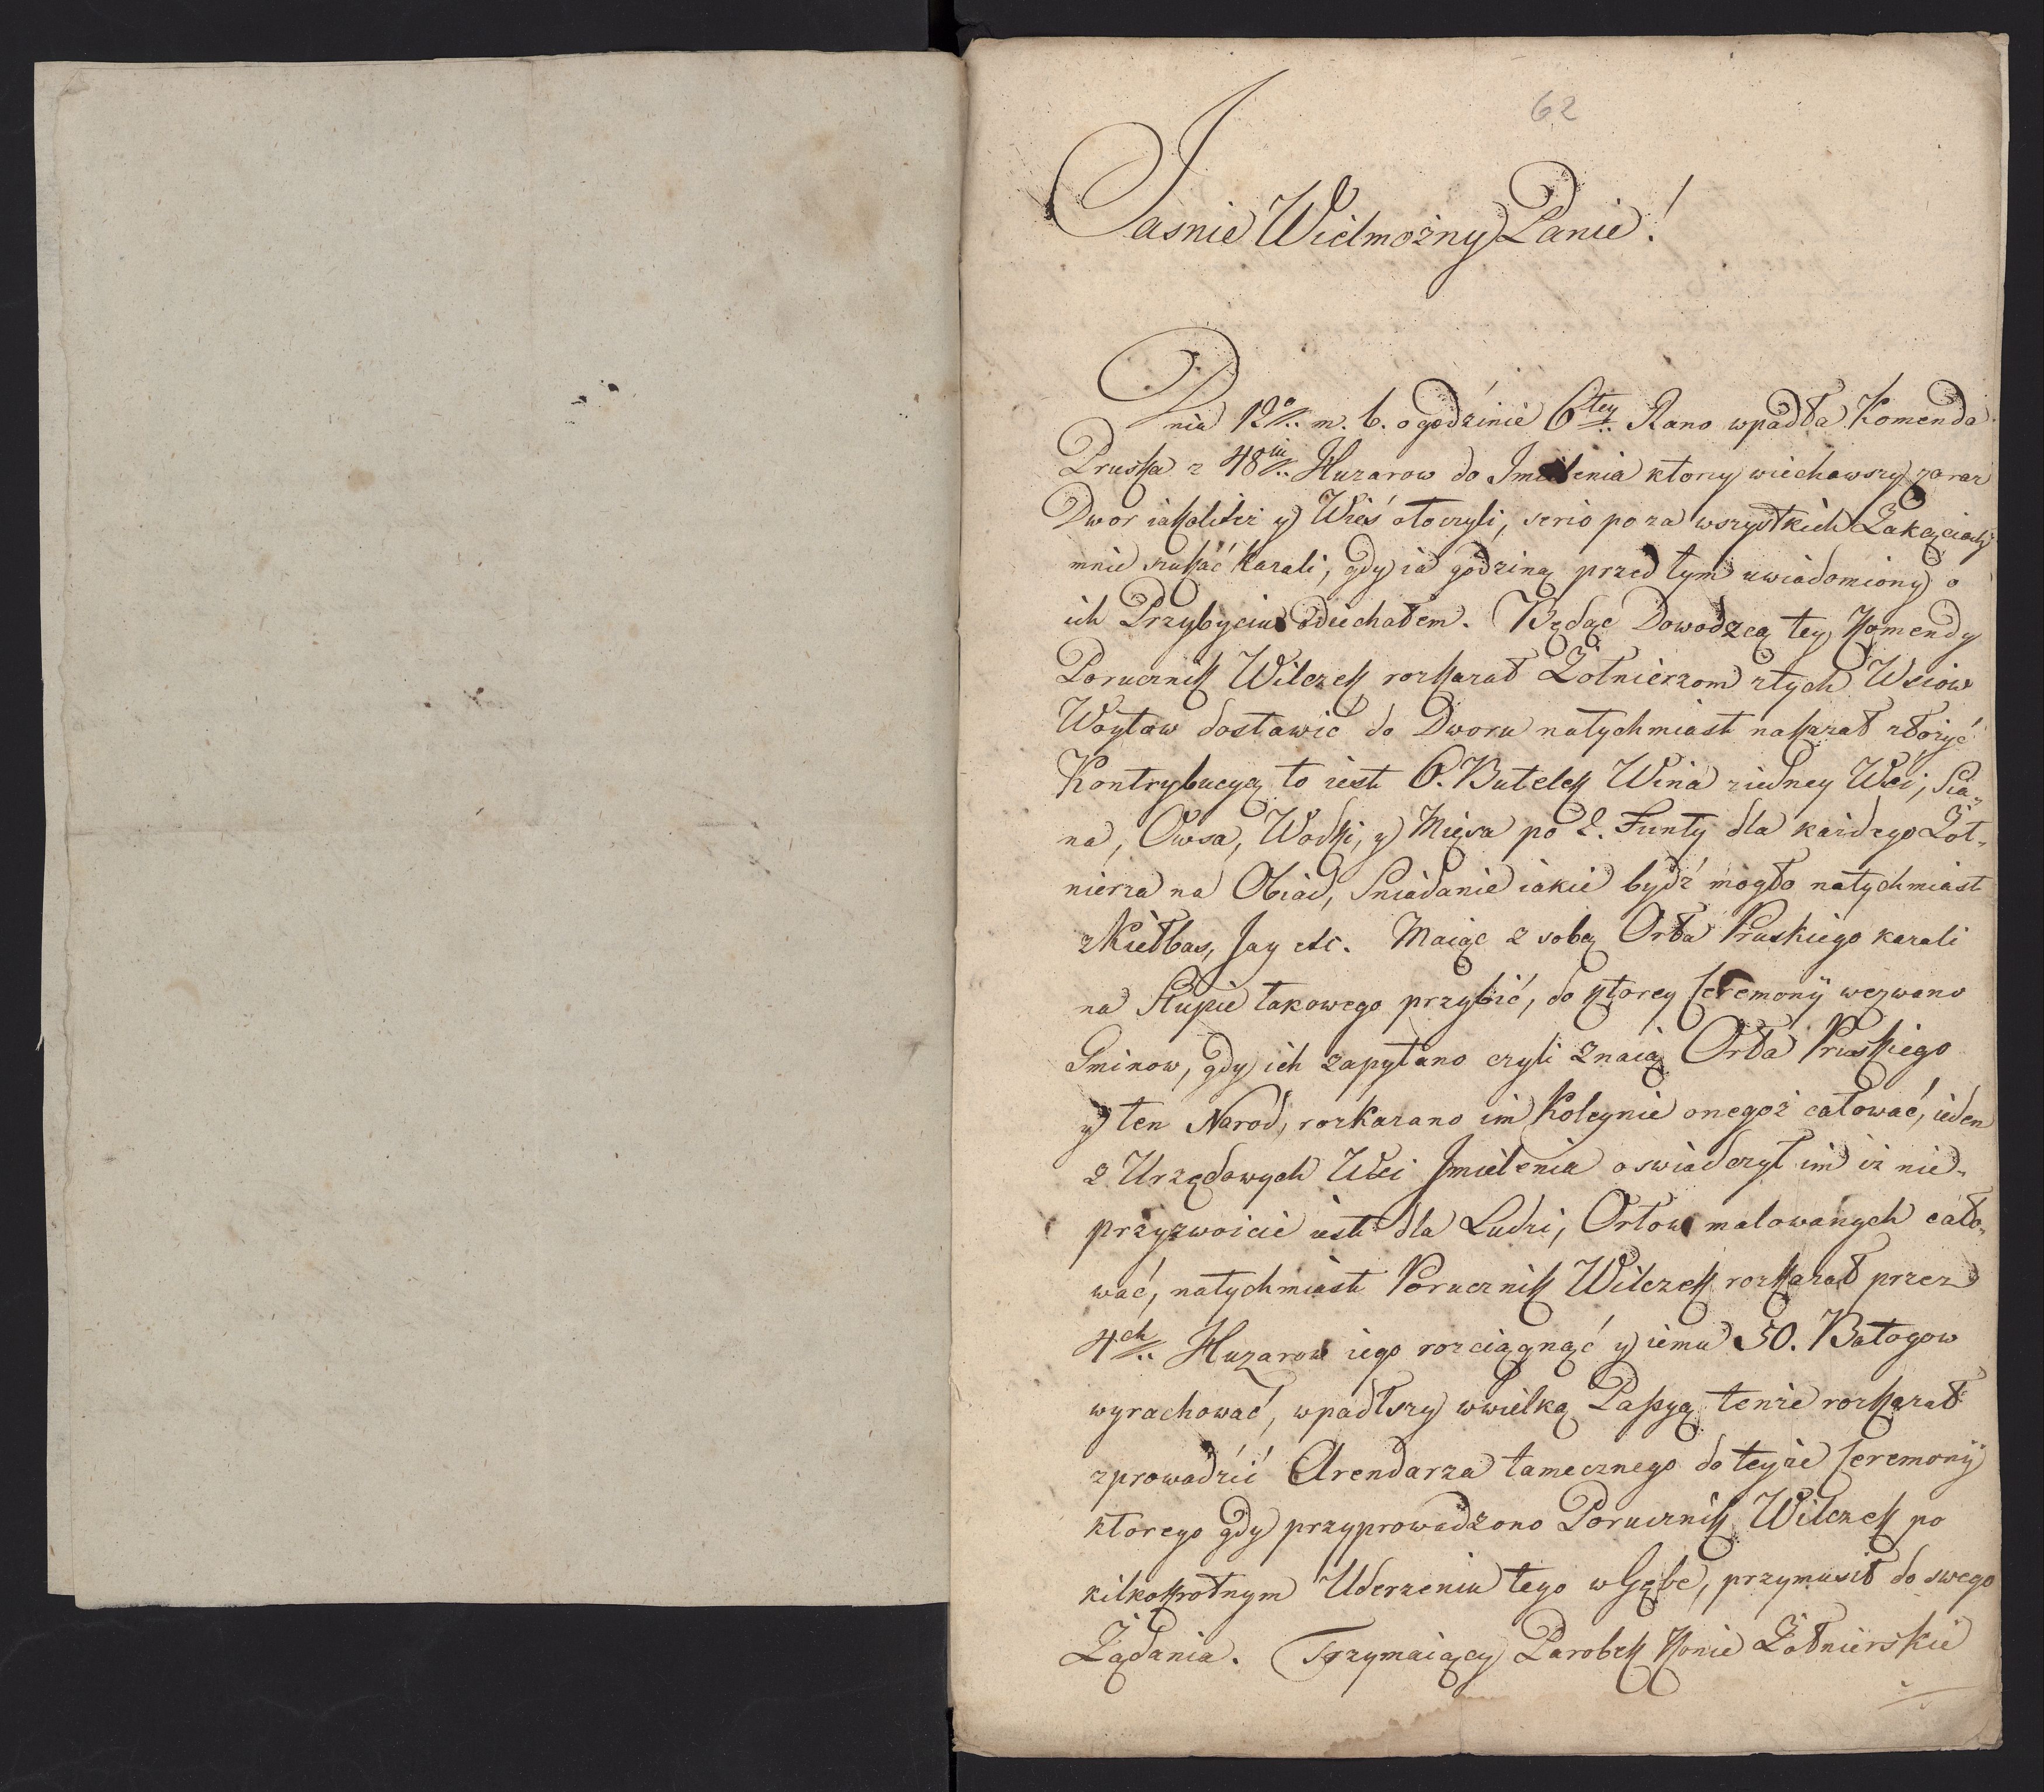 62
Jasnie Wielmożny Panie!
Dnia 12º m. b. o godzinie 6tey Rano wpadła Komenda
Pruska z 48iu Huzarow do Imielenia ktorzy wiechawszy zaraz
Dwor iakoliteż y Wieś otoczyli, serio poza wszystkich Zakąciach
mnie szukać kazali, gdy ia godziną przed tym uwiadomiony o
ich Przybyciu odiechałem. Będąc Dowodzcą tey Komendy
Porucznik Wilczek rozkazał Żołnierzom ztych Wsiow
Woytow dostawić do Dworu natychmiast nakazał złożyć
Kontrybucyą to iest 6. Butelek Wina ziedney Wsi, Sia-
na, Owsa, Wodki, y Mięsa po 2. Funty dla każdego Żoł-
nierza na Obiad, Sniadanie iakie bydź mogło natychmiast
z Kiełbas, Jay etc. Maiąc z sobą Orła Pruskiego kazali
na Słupie takowego przybić, do ktorey Ceremonij wezwano
Gminow, gdy ich zapytano czyli znaią Orła Pruskiego
y ten Narod, rozkazano im Koleynie onegoż całować, ieden
z Urzędowych Wsi Imielenia oswiadczył im iż nie-
przyzwoicie iest dla Ludzi, Orłow malowanych cało-
wać, natychmiast Porucznik Wilczek rozkazał przez
4ch Huzarow iego rozciągnąć y iemu 50. Batogow
wyrachować, wpadłszy wwielką Passyą tenże rozkazał
zprowadzić Arendarza tamecznego do teyże Ceremonij
ktorego gdy przyprowadzono Porucznik Wilczek po
kilkokrotnym Uderzeniu tego w Gębe, przymusił do swego
Żądania. Trzymaiący Parobek Konie Żołnierskie